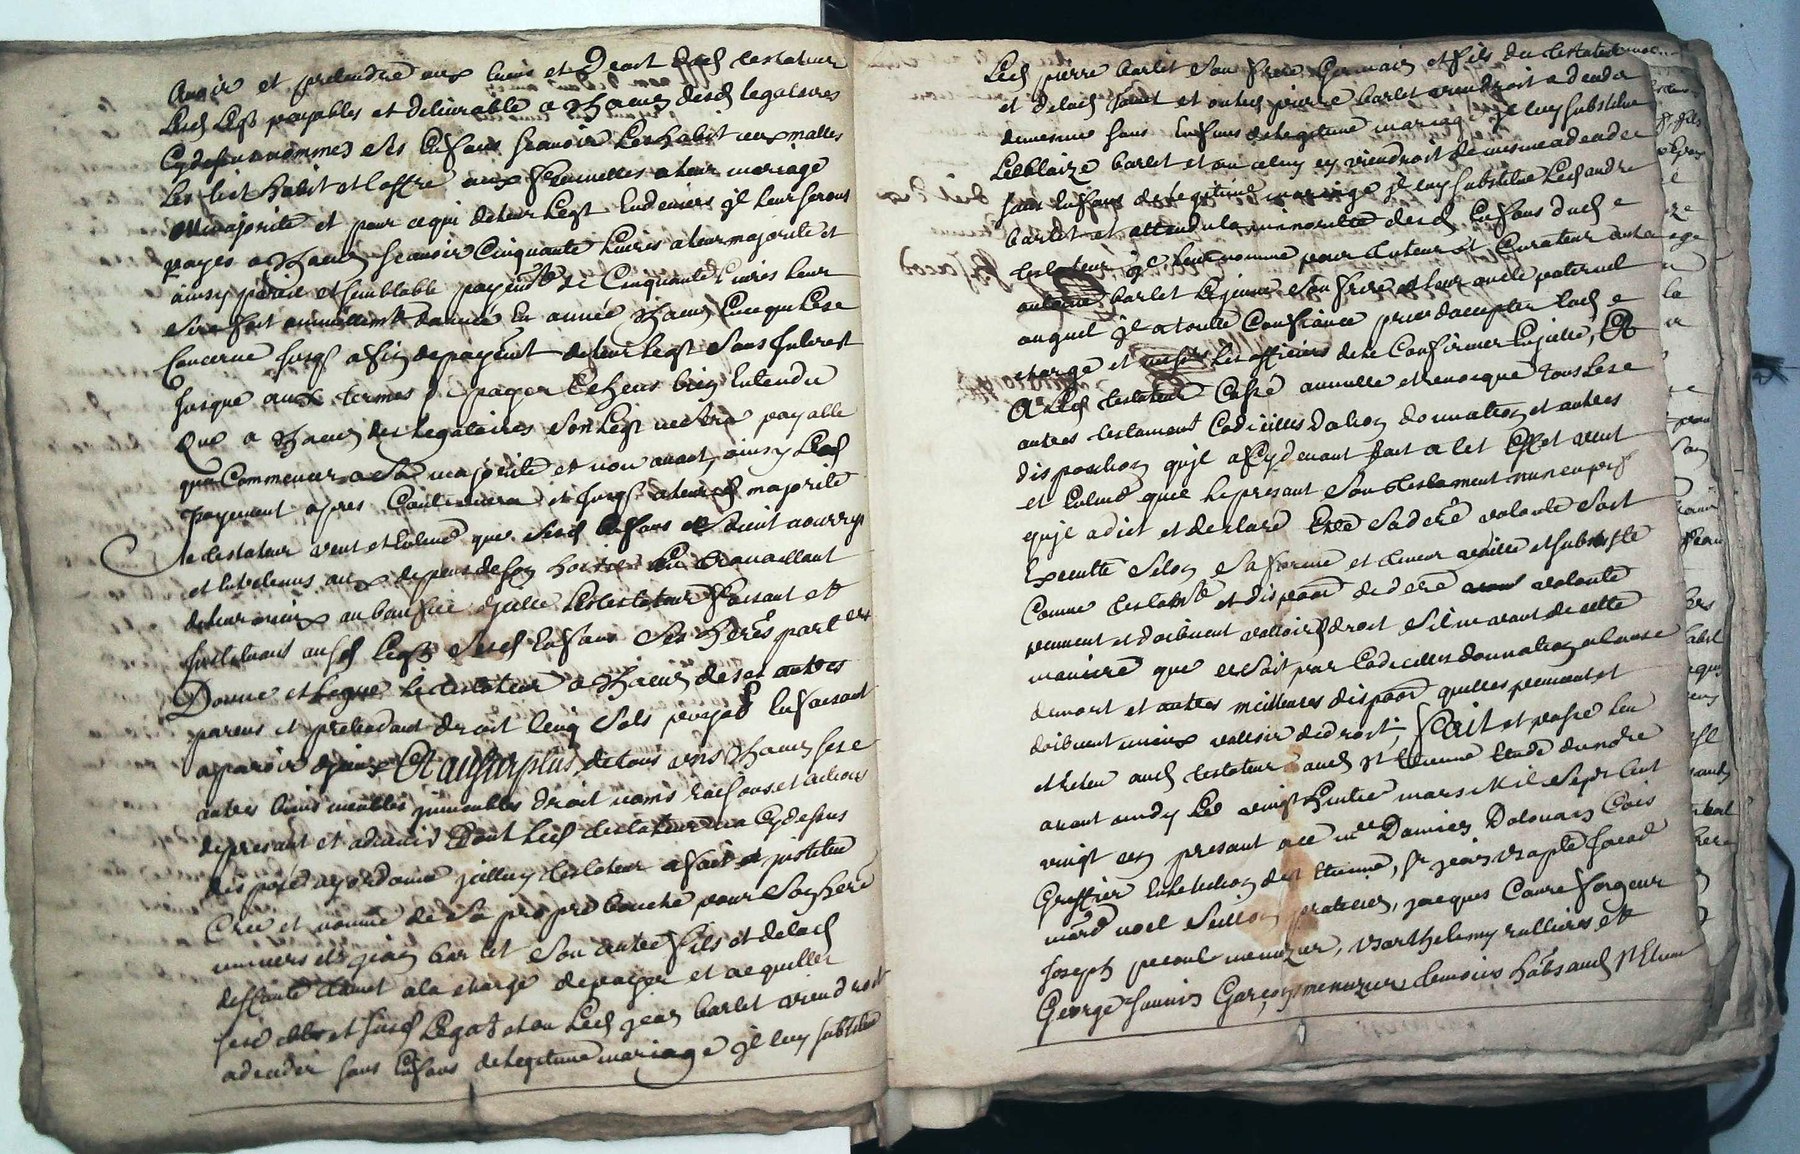 Avoir et pretendre aux biens et Droit dud testateur
Lesd Legs payables et delivrable a Chacun desd legataires
Cydessus nommes et Enfans scavoir Les habit aux malles
Les lict habit et Coffre aux femmelles a leur mariage
ou majorité et pour ce qui de leur Legt En deniers jl leur seront
payes a Chacun scavoir Cinquante Livres a leur majorité et
ainsy pareil et semblable payemt de Cinquante Livres leur
sera fait annuellemt d'année En année Chacun En ce qui Les
Concerne jusqs a fin de payemt de leur legt Sans Interest
jusque aux termes de payer Echeus bien Entendu
Que a Chacun des legataires Son Legt ne Sera payable
qua Commencer a Sa majorité et non avant, ainsy Led
payement apres Continuera et jusqs a leurd majorité
le testateur veut et Entend que Sesd Enfans Soient nourrys
et Entretenus aux depens de Son hoirie En travaillant
de leur mieux au benefice d'jcelle Led testateur faisant et
justituant ausd Legts Sesd Enfans Ses heres parters
Donne et Legue Le testateur a Chacun de ses autres
parens et pretendant droit Cinq Sols payab En faisant
aparoir d'jceux Et au Surplus de tous uns Chacuns Ses
autres biens meubles jmmeubles droit noms raisons et actions
de present et advenir dont Led testateur na Cydessus
dispozé ny ordonné jcelluy testateur a fait et justitue
Créé et nommé de Sa propre bouche pour Son here
univers est jean barlet Son autre fils et de lad
deffunte Camet a la charge de payer et acquitter
Ses debts et Susd Legats et ou Led jean barlet viendroit
a deceder sans Enfans de legitime mariage jl luy substitue
Led pierre barlet Son frere Germain et fils du testateur
et de lad Camet et ou led pierre barlet viendroit a deceder
de mesme sans Enfans de legitime mariage jl luy substitue
Led blaize barlet et ou celuy cy viendroit de mesme a deceder
sans Enfans de legitime mariage jl luy substitue Led andre
barlet et attendu la minorité desd Enfans dud
testateur jl leur nomme pour tuteur et Curateur
antoine barlet Le jeune Son frere et leur oncle paternel
auquel jl a toute Confiance prie d'accepter lad
charge et Les officiers de le Confirmer En jcelle, Et
a Led testateur Cassé annullé et revoque tous Les
autres testament Codicilles donation et autres
disposition qu'jl a Cy devant fait a Cet Effet veut
et Entend que le present Son testament nuncupatif
qu'jl a dict et declaré Estre Sa dere volonté Soit
Executté Selon Sa forme et teneur vaille et Subsiste
Comme testamt et dispoon de dere volonté
peuvent et doibvent valloir de droit Sil ne vaut de cette
maniere que ce Soit par Codicilles donnation a Cause
de mort et autres meilleures dispoon qu'elles peuvent et
doibvent mieux valloir de droit; Fait et passé Leu
et releu aud testateur aud St Etienne Etude du nore
avant midy Le vingt huitie mars Mil Sept Cent
vingt un present a ce me Damien
Greffier En lelection de St Etienne, Sr jean Baptte
mard noel praticien, jacques forgeur
joseph menuzier, Barthelemy rullieres et
George Garçon menuzier temoins habs aud St Etienne